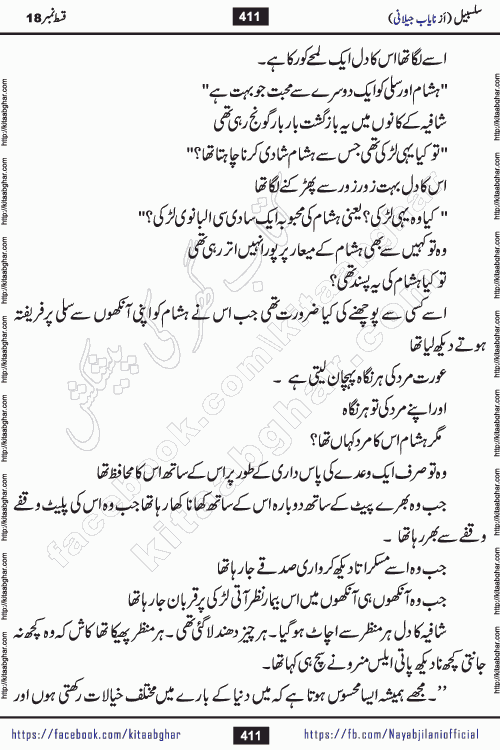 سلسبیل (از نایاب جیلانی)
411
قسط نمبر 18
اسے لگا تھا اس کا دل ایک لمحے کو رکا ہے۔
"ہشام اور سلی کو ایک دوسرے سے محبت جو بہت ہے"
شافیہ کے کانوں میں یہ بازگشت بار بار گونج رہی تھی
"تو کیا یہی لڑکی تھی جس سے ہشام شادی کرنا چاہتا تھا؟"
اس کا دل بہت زور زور سے پھڑکنے لگا تھا
"کیا وہ یہی لڑکی؟ یعنی ہشام کی محبوبہ ایک سادی سی البانوی لڑکی؟"
وہ تو کہیں سے بھی ہشام کے معیار پر پورا نہیں اتر رہی تھی
تو کیا ہشام کی یہ پسند تھی؟
اسے کسی سے پوچھنے کی کیا ضرورت تھی جب اس نے ہشام کو اپنی آنکھوں سے سلی پر فریفتہ
ہوتے دیکھ لیا تھا
عورت مرد کی ہر نگاہ پہچان لیتی ہے ۔
اور اپنے مرد کی تو ہر نگاہ
مگر ہشام اس کا مرد کہاں تھا؟
وہ تو صرف ایک وعدے کی پاس داری کے طور پر اس کے ساتھ اس کا محافظ تھا
جب وہ بھرے پیٹ کے ساتھ دوبارہ اس کے ساتھ کھانا کھا رہا تھا جب وہ اس کی پلیٹ وقفے
وقفے سے بھر رہا تھا ۔
جب وہ اسے مسکراتا دیکھ کر واری صدقے جا رہا تھا
جب وہ آنکھوں ہی آنکھوں میں اس بیمار نظر آتی لڑکی پر قربان جا رہا تھا
شافیہ کا دل ہر منظر سے اچاٹ ہو گیا۔ ہر چیز دھندلا گئی تھی۔ ہر منظر پھیکا تھا کاش کہ وہ کچھ نہ
جانتی کچھ نا دیکھ پاتی ایلس منرو نے سچ ہی کہا تھا۔
’’۔ مجھے ہمیشہ ایسا محسوس ہوتا ہے کہ میں دنیا کے بارے میں مختلف خیالات رکھتی ہوں اور
https://facebook.com/kitaabghar
411
https://fb.com/Nayabjilaniofficial
http://kitaabghar.com
کتاب گھر کی پیشکش
facebook.com/kitaabghar
kitaabghar.com